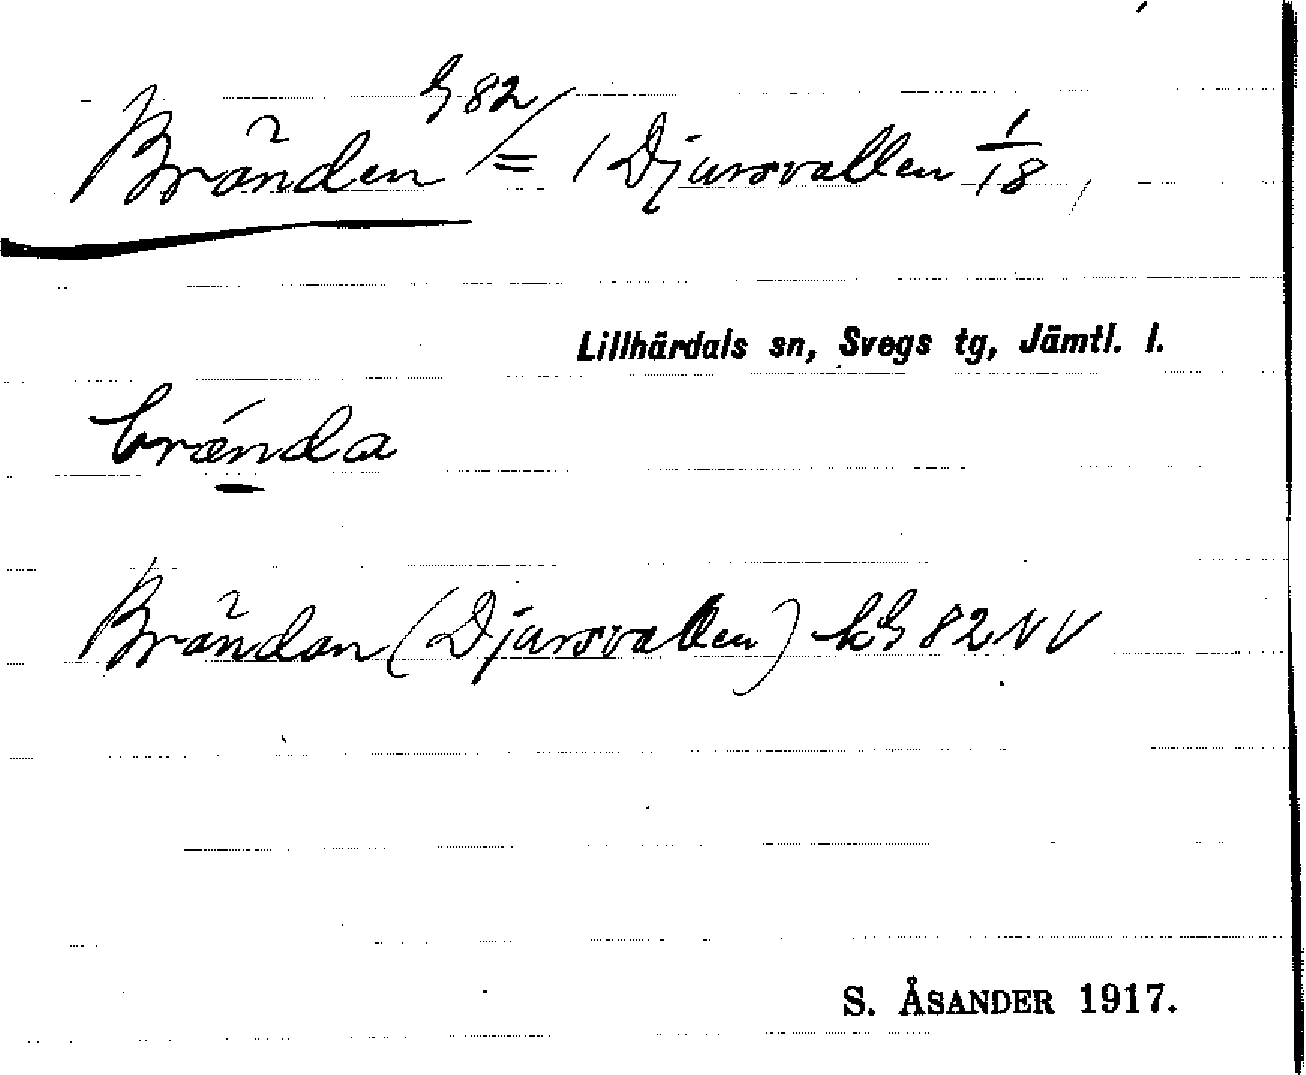 Bränden G 82 = 1 Djursvallen 1/18,
Lillhärdals sn, Svegs tg, Jämtl. l.
brǽnda
Brändan (Djursvallen) kG 82 NV
S. ÅSANDER 1917.